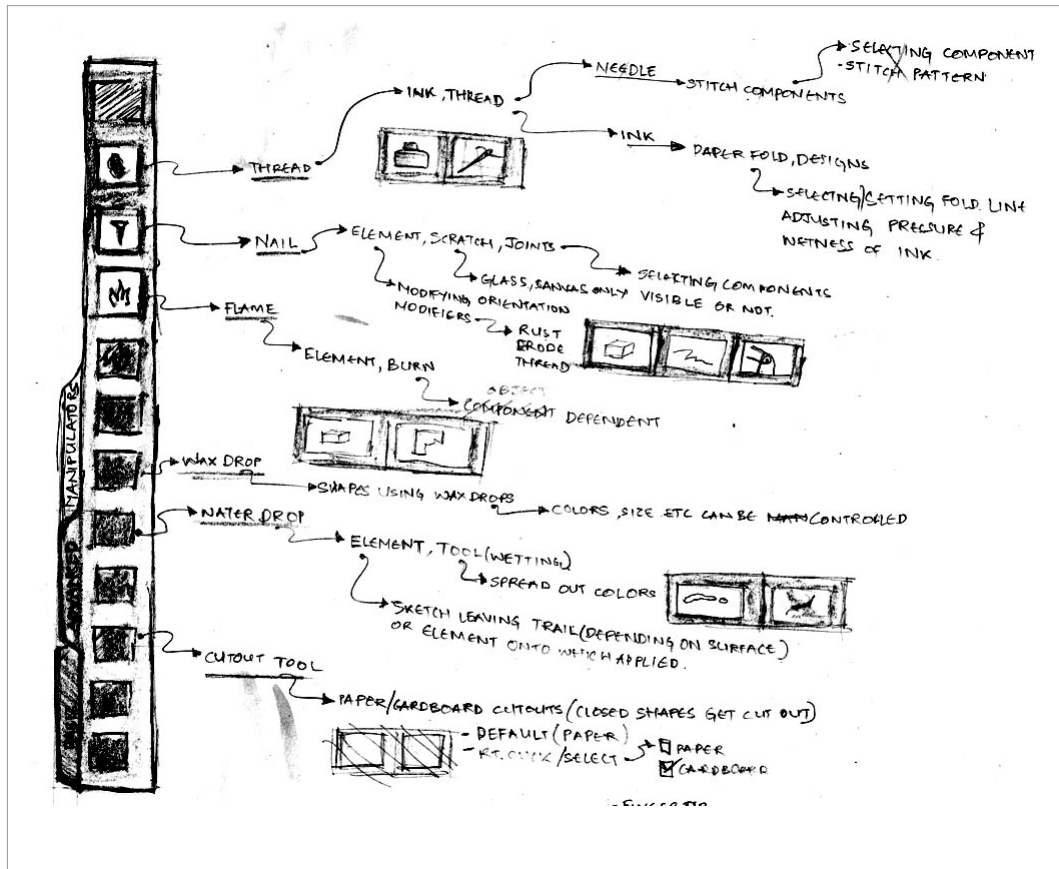 SELECTING COMPONENT
- STITCH PATTERN
NEEDLE
STITCH COMPONENTS
INK, THREAD
INK
PAPER FOLD, DESIGNS
SELECTING/SETTING FOLD LINE
ADJUSTING PRESSURE &
WETNESS OF INK.
THREAD
NAIL
ELEMENT, SCRATCH, JOINTS
SELECTING COMPONENTS
GLASS, CANVAS ONLY VISIBLE OR NOT.
MODIFYING ORIENTATION
MODIFIERS
RUST
ERODE
THREAD
FLAME
ELEMENT, BURN
OBJECT
COMPONENT DEPENDENT
MANIPULATORS
WAX DROP
SHAPES USING WAX DROPS
COLORS, SIZE ETC CAN BE CONTROLLED
WATER DROP
ELEMENT, TOOL (WETTING)
SPREAD OUT COLORS
SKETCH LEAVING TRAIL (DEPENDING ON SURFACE)
OR ELEMENT ONTO WHICH APPLIED.
CUTOUT TOOL
PAPER/CARDBOARD CUTOUTS (CLOSED SHAPES GET CUT OUT)
- DEFAULT (PAPER)
- RT. CLICK/SELECT
PAPER
CARDBOARD